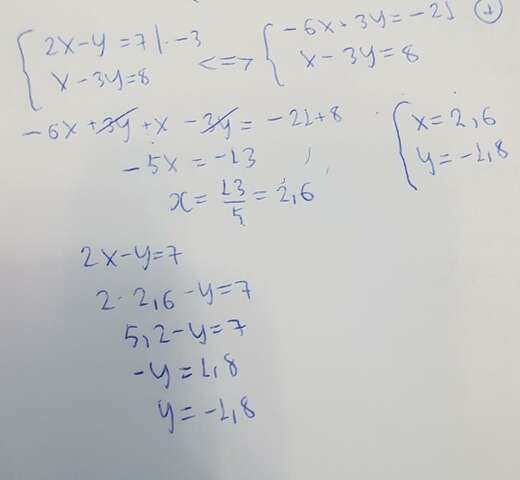 { 2x - y = 7 | · -3
{ x - 3y = 8
<=> { -6x + 3y = -21 (+)
{ x - 3y = 8
-6x + 3y + x - 3y = -21 + 8
-5x = -13
x = 13/5 = 2,6
{ x = 2,6
{ y = -1,8
2x - y = 7
2 · 2,6 - y = 7
5,2 - y = 7
-y = 1,8
y = -1,8